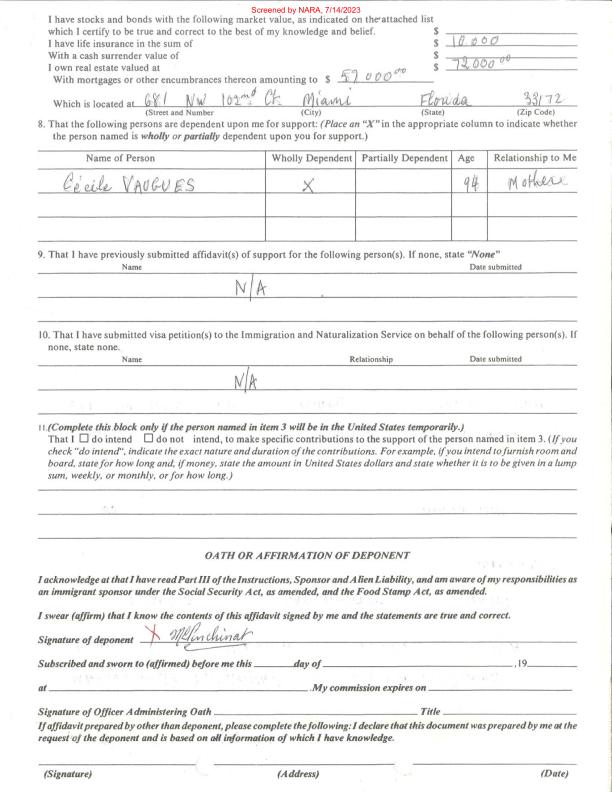 Screened by NARA, 7/14/2023
I have stocks and bonds with the following market value, as indicated on the attached list
which I certify to be true and correct to the best of my knowledge and belief. $
I have life insurance in the sum of $ 10 000
With a cash surrender value of $
I own real estate valued at $ 72000 00
With mortgages or other encumbrances thereon amounting to $ 57 000 00
Which is located at 681 NW 102nd Ct. Miami Florida 33172
(Street and Number) (City) (State) (Zip Code)
8. That the following persons are dependent upon me for support: (Place an "X" in the appropriate column to indicate whether
the person named is wholly or partially dependent upon you for support.)
Name of Person Wholly Dependent Partially Dependent Age Relationship to Me
Cécile VAUGUES X 94 Mother
9. That I have previously submitted affidavit(s) of support for the following person(s). If none, state "None"
Name Date submitted
N/A
10. That I have submitted visa petition(s) to the Immigration and Naturalization Service on behalf of the following person(s). If
none, state none.
Name Relationship Date submitted
N/A
11. (Complete this block only if the person named in item 3 will be in the United States temporarily.)
That I ☐ do intend ☐ do not intend, to make specific contributions to the support of the person named in item 3. (If you
check "do intend", indicate the exact nature and duration of the contributions. For example, if you intend to furnish room and
board, state for how long and, if money, state the amount in United States dollars and state whether it is to be given in a lump
sum, weekly, or monthly, or for how long.)
OATH OR AFFIRMATION OF DEPONENT
I acknowledge at that I have read Part III of the Instructions, Sponsor and Alien Liability, and am aware of my responsibilities as
an immigrant sponsor under the Social Security Act, as amended, and the Food Stamp Act, as amended.
I swear (affirm) that I know the contents of this affidavit signed by me and the statements are true and correct.
Signature of deponent X
Subscribed and sworn to (affirmed) before me this day of ,19
at .My commission expires on
Signature of Officer Administering Oath Title
If affidavit prepared by other than deponent, please complete the following: I declare that this document was prepared by me at the
request of the deponent and is based on all information of which I have knowledge.
(Signature) (Address) (Date)